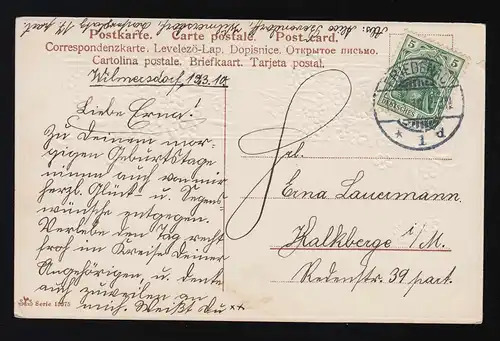 Postkarte. Carte postale. Post card.
Correspondenzkarte. Levelező-Lap. Dopisnice. Открытое письмо.
Cartolina postale. Briefkaart. Tarjeta postal.
Wilmersdorf, 19.3.10
Liebe Erna!
Zu Deinem mor-
gigen Geburtstage
nimm auch von mir
herzl. Glück- u. Segens-
wünsche entgegen.
Verlebe den Tag recht
froh im Kreise Deiner
Angehörigen, u. denke
auch zuweilen an
mich. Weißt Du ++
Serie
5 5
FRIEDENAU
1 d
Frl.
Erna Lauermann
Kalkberge i/M.
Redenstr. 39 part.